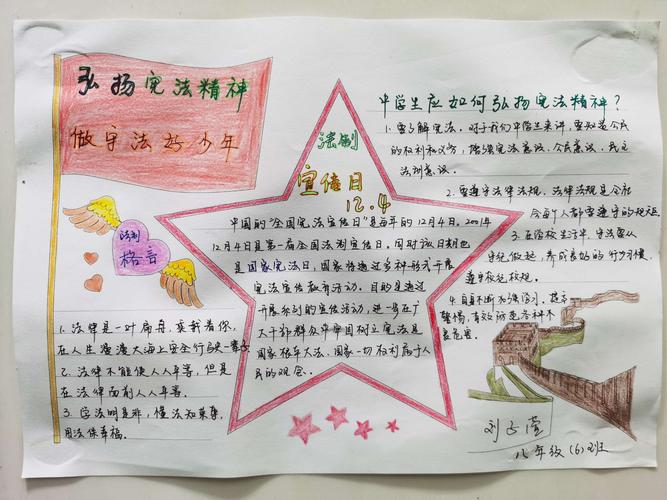 弘扬宪法精神
做守法好少年
法制
宣传日
12.4
中国的"全国宪法宣传日"是每年的12月4日。2001年
12月4日是第一届全国法制宣传日。同时该日期也
是国家宪法日,国家将通过多种形式开展
宪法宣传教育活动。目的是通过
开展系列的宣传活动,进一步在广
大干部群众中牢固树立宪法是
国家根本大法、国家一切权利属于人
民的观念。
法制
格言
1.法律是一叶扁舟,乘载着你,
在人生漫漫大海上安全行驶一辈子
2.法律不能使人人平等,但是
在法律面前人人平等。
3.学法明是非,懂法知荣辱,
用法保幸福。
中学生应如何弘扬宪法精神?
1.要了解宪法。对于我们中学生来讲,要知道公民
的权利和义务,增强宪法意识、公民意识、民主
法制意识。
2.要遵守法律法规。法律法规是全社
会每个人都要遵守的规范
3.在学校生活中,守法要从
守纪做起,养成良好的行为习惯,
遵守校纪校规。
4.自身不断加强学习,提高
警惕,有效防范各种不
良危害。
刘子萱
八年级(6)班